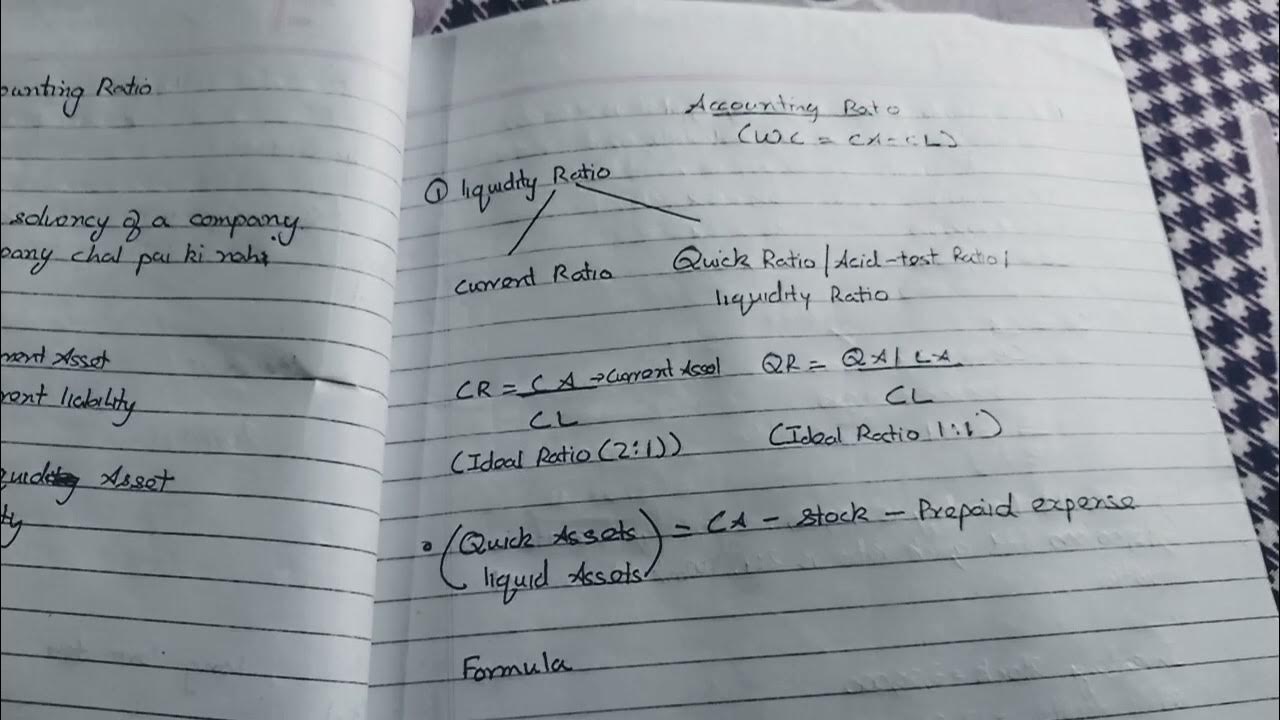 ounting Ratio
solvency of a company
pany chal pai ki nahi
rent Asset
rent liability
Asset
ty
Accounting Rato
(WC = CA - CL)
① liquidity Ratio
Current Ratio
Quick Ratio / Acid-test Ratio /
liquidity Ratio
CR = CA → Current Asset
CL
(Ideal Ratio (2:1))
QR = QA / LA
CL
(Ideal Ratio 1:1)
(Quick Assets
liquid Assets) = CA - Stock - Prepaid expense
Formula